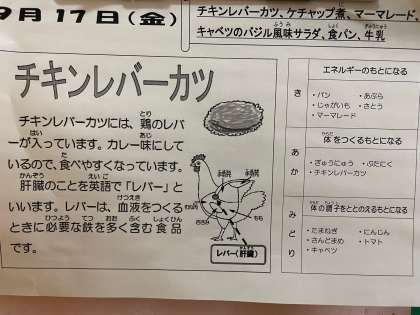 9月17日(金)
チキンレバーカツ、ケチャップ煮、マーマレード、
キャベツのバジル風味サラダ、食パン、牛乳
チキンレバーカツ
チキンレバーカツには、鶏のレバ
ーが入っています。カレー味にして
いるので、食べやすくなっています。
肝臓のことを英語で「レバー」と
いいます。レバーは、血液をつくる
ときに必要な鉄を多く含む食品
です。
もも
レバー(肝臓)
エネルギーのもとになる
き
・パン ・あぶら
・じゃがいも ・さとう
・マーマレード
体をつくるもとになる
あか
・ぎゅうにゅう ・ぶたにく
・チキンレバーカツ
体の調子をととのえるもとになる
みどり
・たまねぎ ・にんじん
・さんどまめ ・トマト
・キャベツ